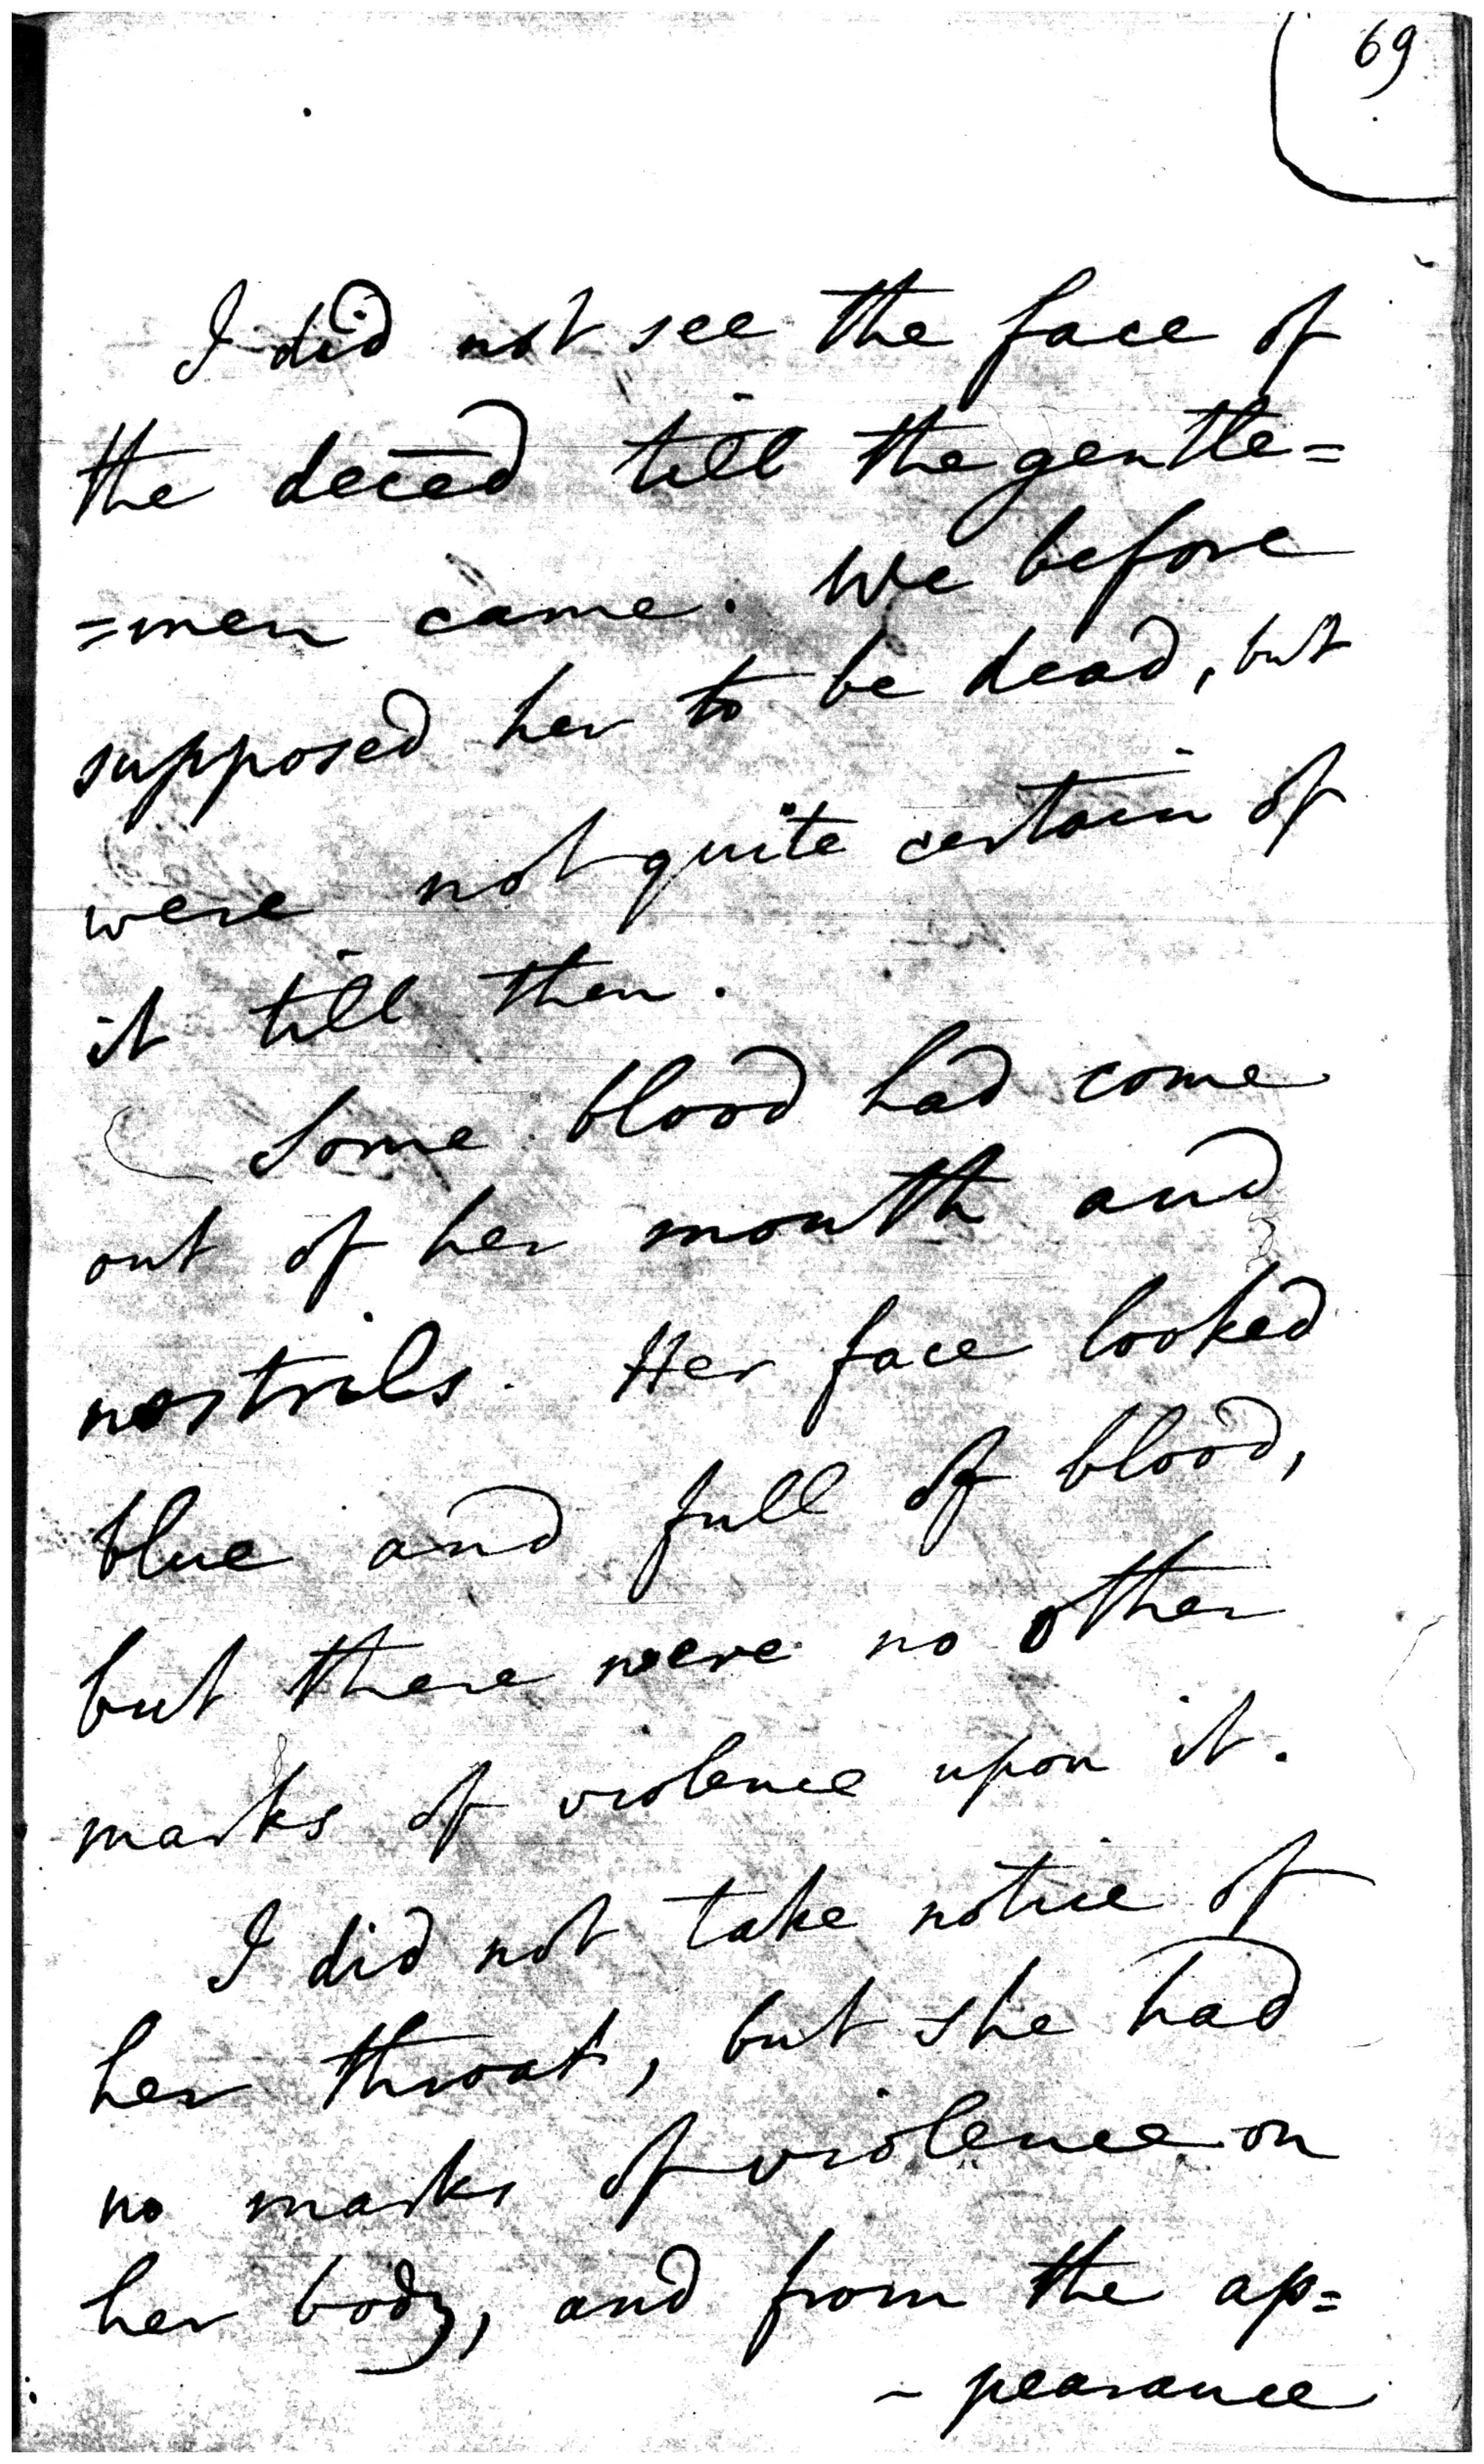 69
I did not see the face of
the deced till the gentle=
=men came. We before
supposed her to be dead, but
were not quite certain of
it till then.
Some blood had come
out of her mouth and
nostrils. Her face looked
blue and full of blood,
but there were no other
marks of violence upon it.
I did not take notice of
her throat, but she had
no marks of violence on
her body, and from the ap=
- pearance